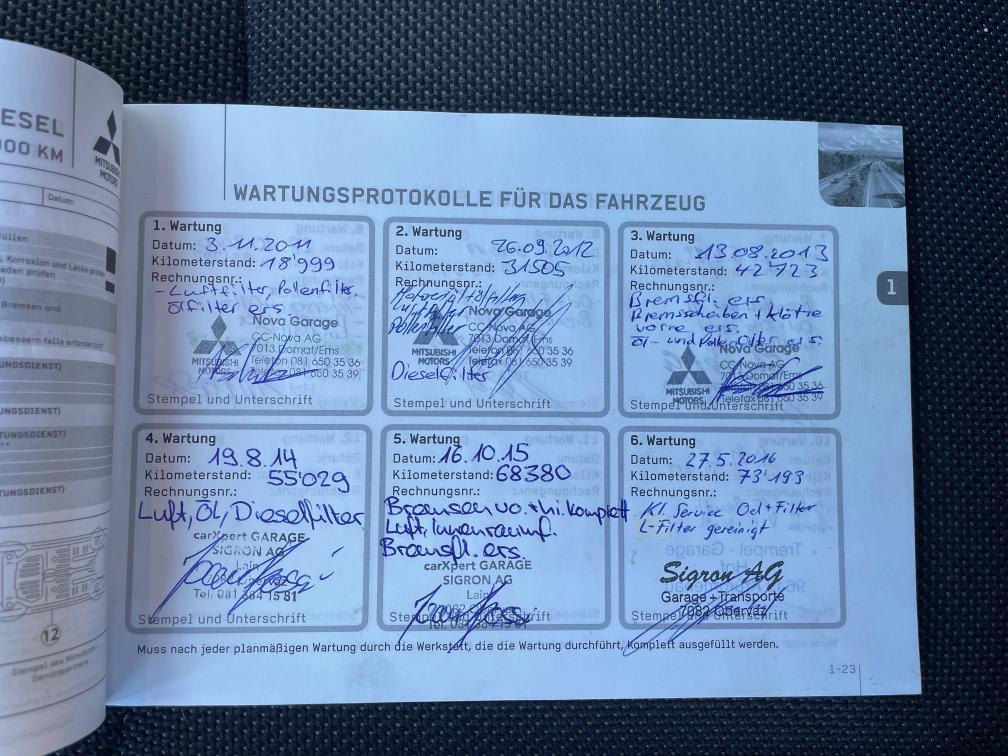 ESEL
000 KM
MITSUBISHI
MOTORS
Datum:
füllen
, Korrosion und Lacke prüfen
eden prüfen
Bremsen und
sbessern falls erforderlich
UNGSDIENST)
UNGSDIENST)
TUNGSDIENST)
UNGSDIENST)
12
Stempel des Mitsubishi
Servicepartners
WARTUNGSPROTOKOLLE FÜR DAS FAHRZEUG
1
1. Wartung
Datum: 3.11.2011
Kilometerstand: 18'999
Rechnungsnr.:
- Luftfilter, Pollenfilter,
Ölfilter ers.
Nova Garage
CC-Nova AG
7013 Domat/Ems
Telefon 081 650 35 36
Telefax 081 650 35 39
MITSUBISHI
MOTORS
Stempel und Unterschrift
2. Wartung
Datum: 26.09.2012
Kilometerstand: 31505
Rechnungsnr.:
Motorenöl + Ölfilter
Luftfilter
Pollenfilter
Dieselfilter
Nova Garage
CC-Nova AG
7013 Domat/Ems
Telefon 081 650 35 36
Telefax 081 650 35 39
MITSUBISHI
MOTORS
Stempel und Unterschrift
3. Wartung
Datum: 13.08.2013
Kilometerstand: 42'723
Rechnungsnr.:
Bremsfl. ers.
Bremsscheiben + Klötze
vorne ers.
Öl- und Pollenfilter ers.
Nova Garage
CC-Nova AG
7013 Domat/Ems
Telefon 081 650 35 36
Telefax 081 650 35 39
MITSUBISHI
MOTORS
Stempel und Unterschrift
4. Wartung
Datum: 19.8.14
Kilometerstand: 55'029
Rechnungsnr.:
Luft, Öl, Dieselfilter
carXpert GARAGE
SIGRON AG
Lain
Tel. 081 384 15 81
Stempel und Unterschrift
5. Wartung
Datum: 16.10.15
Kilometerstand: 68380
Rechnungsnr.:
Bremsen vo. + hi. komplett
Luft, Innenraumf.
Bremsfl. ers.
carXpert GARAGE
SIGRON AG
Lain
7082
Tel. 081 384 15 81
Stempel und Unterschrift
6. Wartung
Datum: 27.5.2016
Kilometerstand: 73'193
Rechnungsnr.:
Kl. Service Oel + Filter
L-Filter gereinigt
Sigron AG
Garage + Transporte
7082 Obervaz
Stempel und Unterschrift
Muss nach jeder planmäßigen Wartung durch die Werkstatt, die die Wartung durchführt, komplett ausgefüllt werden.
1-23